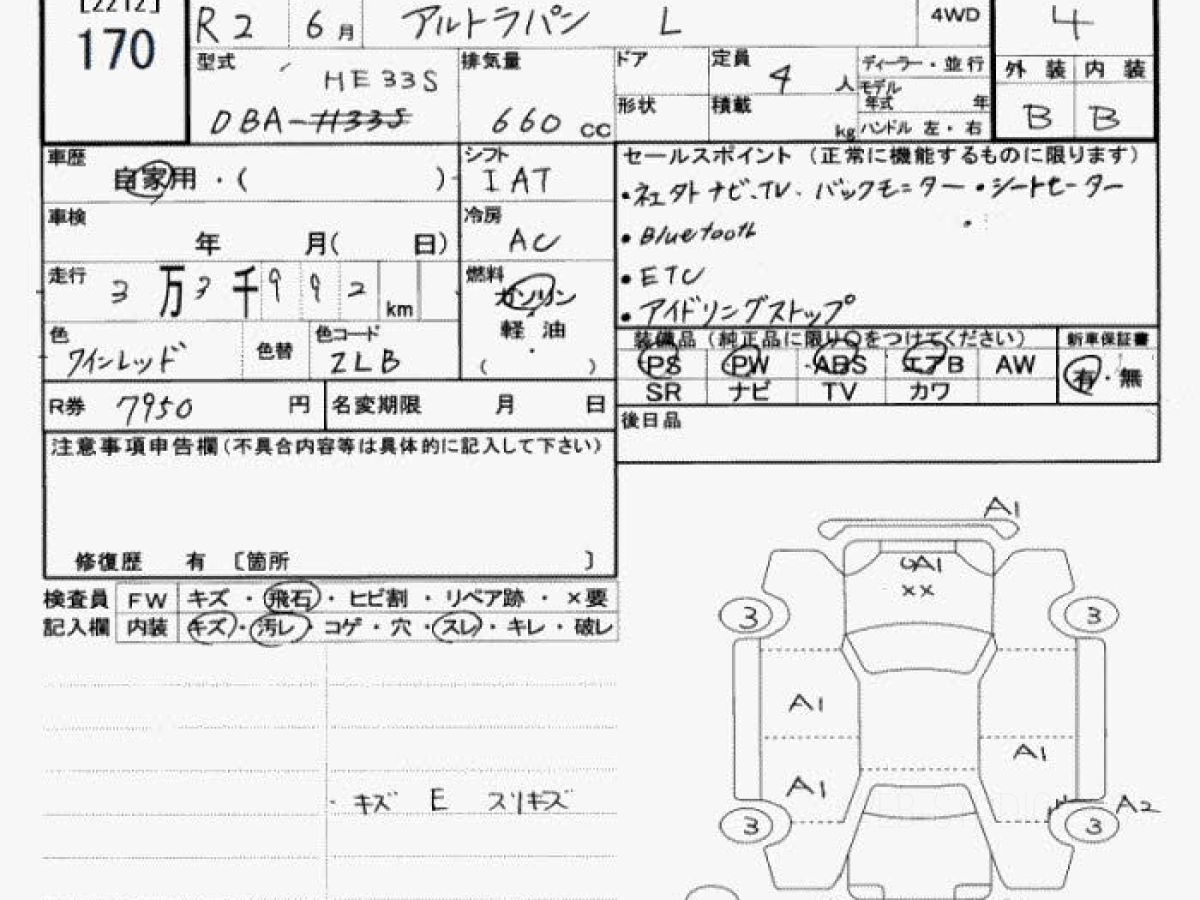 [2212]
170
R2 6月 アルトラパン L 4WD 4
型式 HE33S
DBA-H33S
排気量 660 cc
ドア
形状
定員 4 人
積載 kg
ディーラー・並行
モデル年式 年
ハンドル 左・右
外装 内装
B B
車歴 自家用・( )
シフト IAT
車検 年 月( 日)
冷房 AC
走行 3万3千992 km
燃料 ガソリン
軽油
( )
色 ワインレッド 色替 色コード ZLB
R券 7950 円 名変期限 月 日
セールスポイント(正常に機能するものに限ります)
・社外ナビ、TV、バックモニター ・シートヒーター
・Bluetooth
・ETC
・アイドリングストップ
装備品(純正品に限り○をつけてください) 新車保証書
PS PW ABS エアB AW 有・無
SR ナビ TV カワ
後日品
注意事項申告欄(不具合内容等は具体的に記入して下さい)
修復歴 有 〔箇所 〕
検査員 FW キズ・飛石・ヒビ割・リペア跡・×要
記入欄 内装 キズ・汚レ・コゲ・穴・スレ・キレ・破レ
キズ E スリキズ
A1
A1
××
3 3
A1
A1
A1
A2
3 3